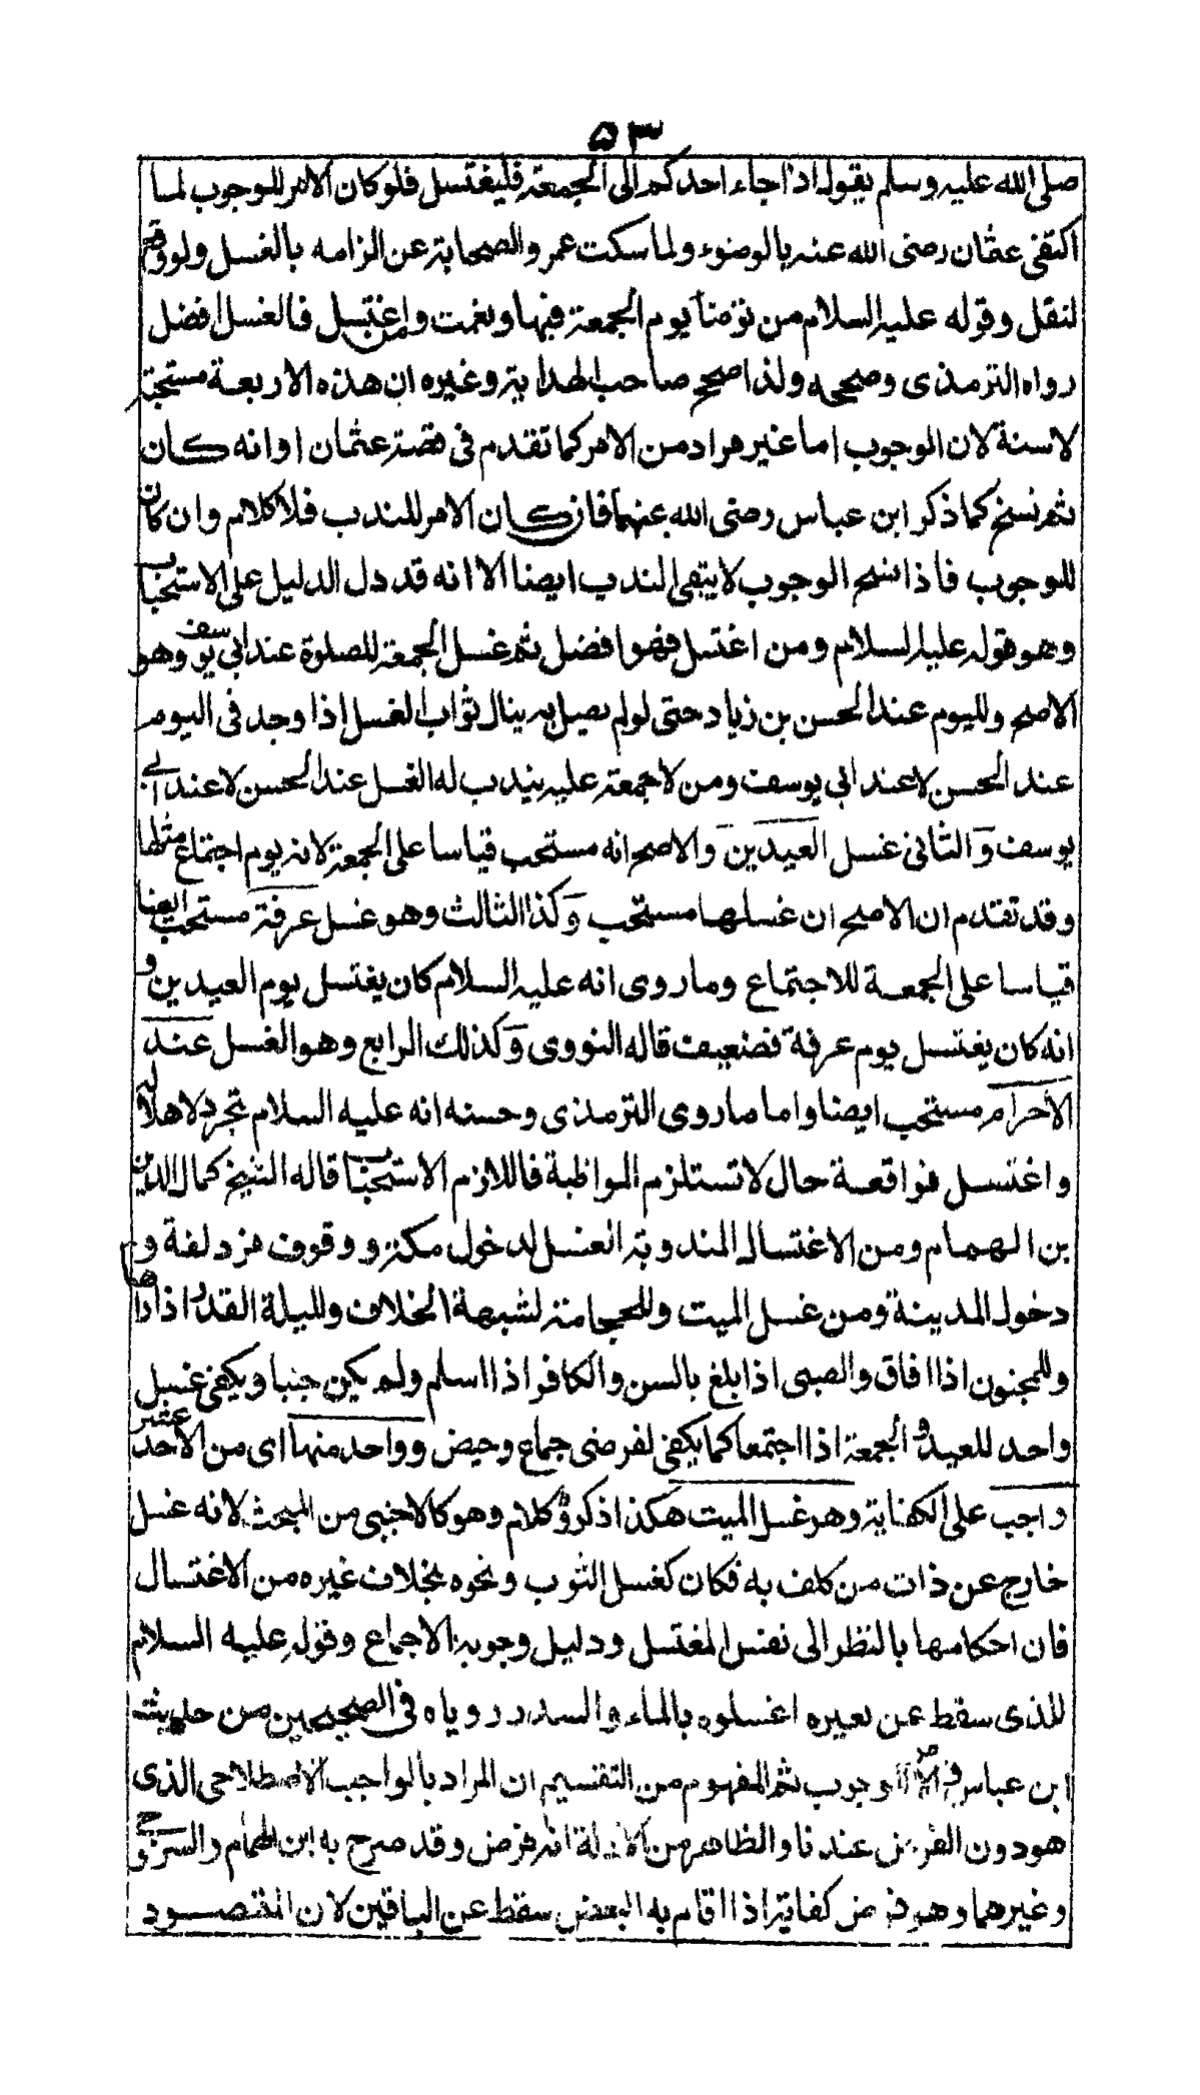 ۵۳
صلى الله عليه وسلم يقوله اذا جاء احدكم الى الجمعة فليغتسل فلو كان الامر للوجوب لما
اكتفى عثمان رضى الله عنه بالوضوء ولما سكت عمر والصحابة عن الزامه بالغسل ولو وقع
لنقل وقوله عليه السلام من توضأ يوم الجمعة فبها ونعمت ومن اغتسل فالغسل افضل
رواه الترمذى وصححه ولذا صحح صاحب الهداية وغيره ان هذه الاربعة مستحبة
لا سنة لان الوجوب اما غير مراد من الامر كما تقدم فى قصة عثمان او انه كان
ثم نسخ كما ذكر ابن عباس رضى الله عنهما فان كان الامر للندب فلا كلام وان كان
للوجوب فاذا نسخ الوجوب لا يبقى الندب ايضا الا انه قد دل الدليل على الاستحباب
وهو قوله عليه السلام ومن اغتسل فهو افضل ثم غسل الجمعة للصلوة عند ابى يوسف وهو
الاصح ولليوم عند الحسن بن زياد حتى لو لم يصل به ينال ثواب الغسل اذا وجد فى اليوم
عند الحسن لا عند ابى يوسف ومن لا جمعة عليه يندب له الغسل عند الحسن لا عند ابى
يوسف والثانى غسل العيدين والاصح انه مستحب قياسا على الجمعة لانه يوم اجتماع مثلها
وقد تقدم ان الاصح ان غسلها مستحب وكذا الثالث وهو غسل عرفة مستحب ايضا
قياسا على الجمعة للاجتماع وما روى انه عليه السلام كان يغتسل يوم العيدين و
انه كان يغتسل يوم عرفة فضعيف قاله النووى وكذلك الرابع وهو الغسل عند
الاحرام مستحب ايضا واما ما روى الترمذى وحسنه انه عليه السلام تجرد لاهلاله
واغتسل فواقعة حال لا تستلزم المواظبة فاللازم الاستحباب قاله الشيخ كمال الدين
بن الهمام ومن الاغتسال المندوبة الغسل لدخول مكة ووقوف مزدلفة و
دخول المدينة ومن غسل الميت وللحجامة لشبهة الخلاف ولليلة القدر اذا راها
وللمجنون اذا افاق والصبى اذا بلغ بالسن والكافر اذا اسلم ولم يكن جنبا ويكفى غسل
واحد للعيد والجمعة اذا اجتمعا كما يكفى لفرضى جماع وحيض وواحد منها اى من الاحد عشر
واجب على الكفاية وهو غسل الميت هكذا ذكروا كلام وهو كالاجنبى من المبحث لانه غسل
خارج عن ذات من كلف به فكان كغسل الثوب ونحوه بخلاف غيره من الاغتسال
فان احكامها بالنظر الى نفس المغتسل ودليل وجوبه الاجماع وقوله عليه السلام
للذى سقط عن بعيره اغسلوه بالماء والسدر روياه فى الصحيحين من حديث
ابن عباس وجوب ثم المفهوم من التقسيم ان المراد بالواجب الاصطلاحى الذى
هو دون الفرض عندنا والظاهر من الادلة انه فرض وقد صرح به ابن الهمام والسروجى
وغيرهما وهو فرض كفاية اذا اقام به البعض سقط عن الباقين لان المقصود